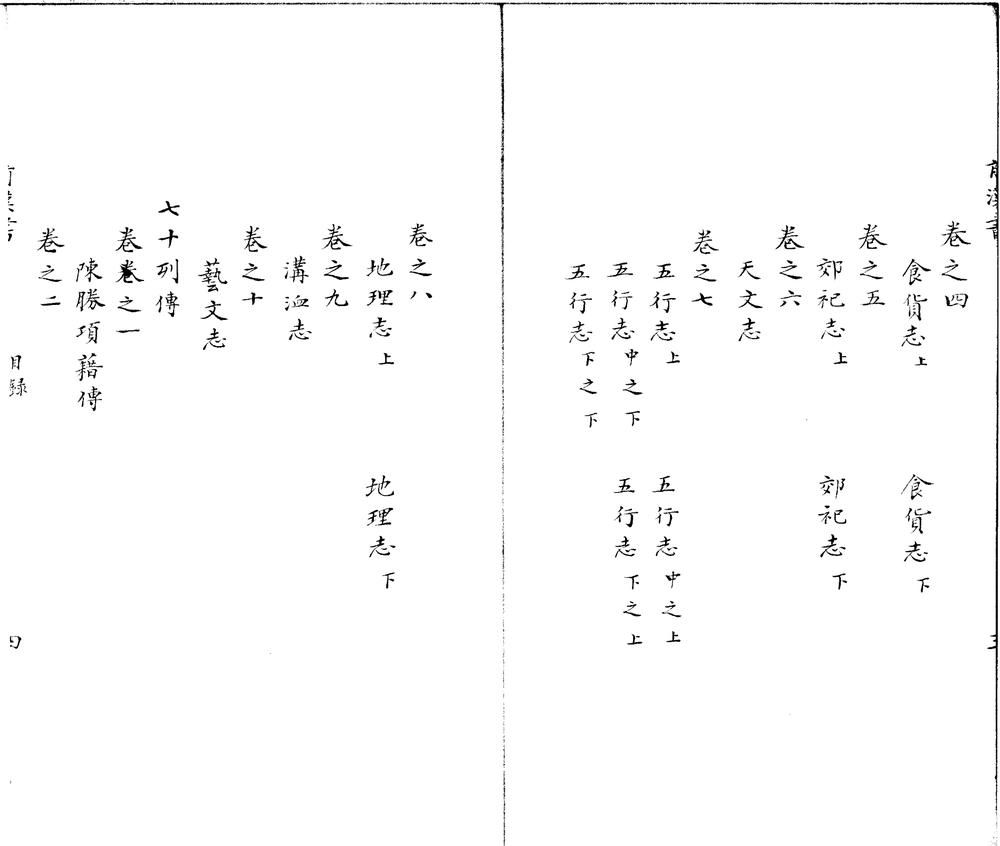 前漢書
三
卷之四
食貨志上 食貨志下
卷之五
郊祀志上 郊祀志下
卷之六
天文志
卷之七
五行志上 五行志中之上
五行志中之下 五行志下之上
五行志下之下
卷之八
地理志上 地理志下
卷之九
溝洫志
卷之十
藝文志
七十列傳
卷卷之一
陳勝項籍傳
卷之二
前漢書 目録 四